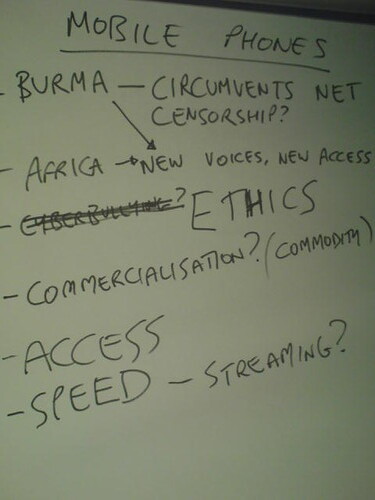 MOBILE PHONES
- BURMA - CIRCUMVENTS NET
CENSORSHIP?
- AFRICA → NEW VOICES, NEW ACCESS
- CYBERBULLYING? ETHICS
- COMMERCIALISATION? (COMMODITY)
- ACCESS
- SPEED - STREAMING?